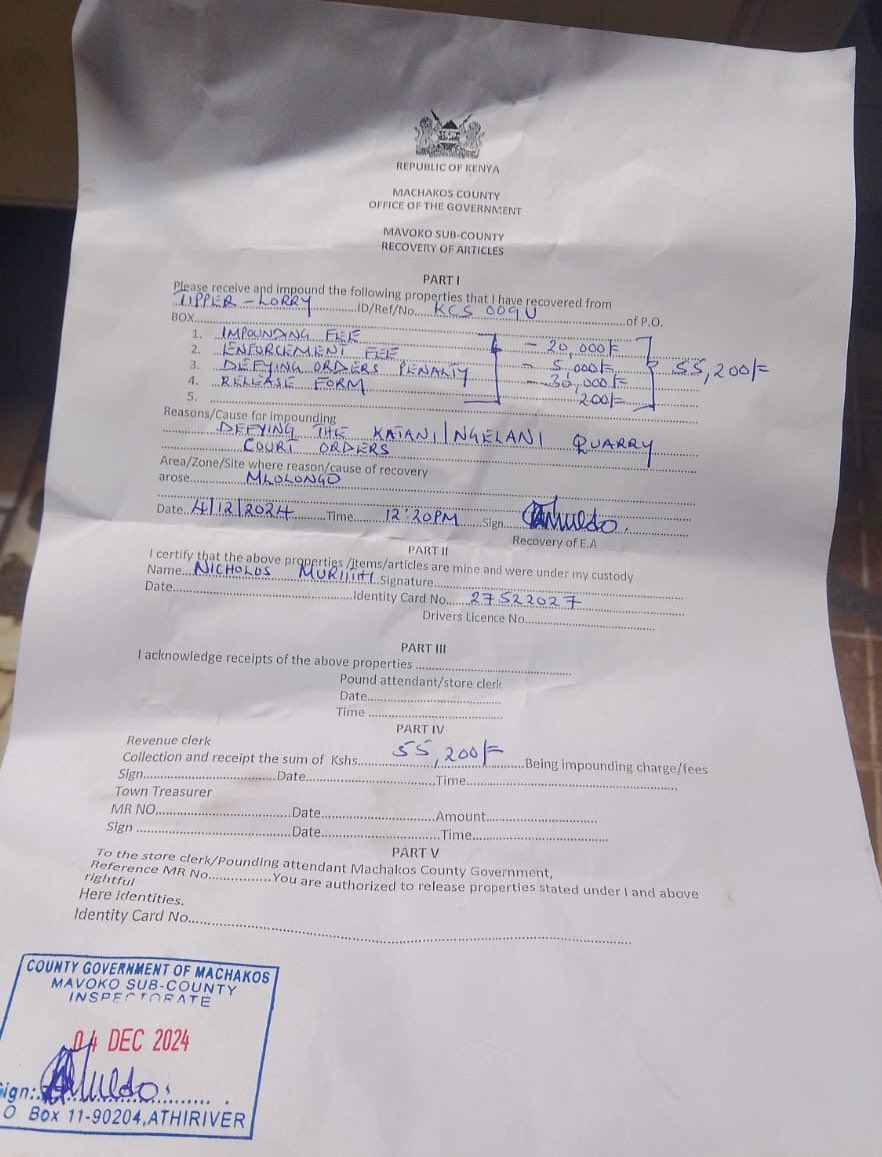 REPUBLIC OF KENYA
MACHAKOS COUNTY
OFFICE OF THE GOVERNMENT
MAVOKO SUB-COUNTY
RECOVERY OF ARTICLES
PART I
Please receive and impound the following properties that I have recovered from
TIPPER - LORRY ID/Ref/No. KCS 009U of P.O.
BOX
1. IMPOUNDING FEE - 20,000/=
2. ENFORCEMENT FEE - 5,000/= 55,200/=
3. DEFYING ORDERS PENALTY - 30,000/=
4. RELEASE FORM 200/=
5.
Reasons/Cause for impounding
DEFYING THE KATANI/NGELANI QUARRY
COURT ORDERS
Area/Zone/Site where reason/cause of recovery
arose MLOLONGO
Date 4/12/2024 Time 12:20PM Sign
Recovery of E.A
PART II
I certify that the above properties /items/articles are mine and were under my custody
Name NICHOLUS MURIITHI Signature
Date Identity Card No. 27522027
Drivers Licence No.
PART III
I acknowledge receipts of the above properties
Pound attendant/store clerk
Date
Time
PART IV
Revenue clerk
Collection and receipt the sum of Kshs. 55,200/= Being impounding charge/fees
Sign Date Time
Town Treasurer
MR NO. Date Amount
Sign Date Time
PART V
To the store clerk/Pounding attendant Machakos County Government,
Reference MR No. You are authorized to release properties stated under I and above
rightful
Here identities.
Identity Card No.
COUNTY GOVERNMENT OF MACHAKOS
MAVOKO SUB-COUNTY
INSPECTORATE
04 DEC 2024
Sign:
O Box 11-90204, ATHIRIVER